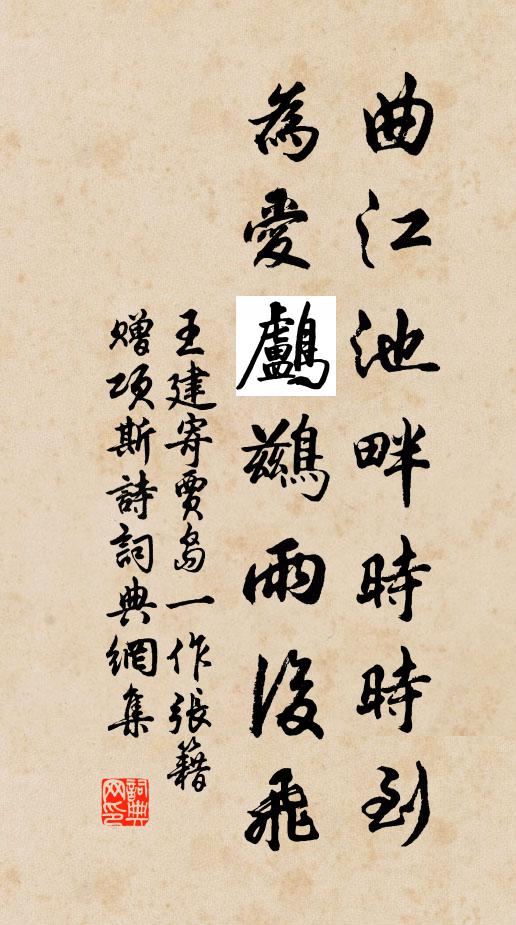 曲江池畔時時到
為愛鸕鷀雨後飛
王建寄賈島一作張籍
贈項斯詩詞典網集
詞典
网印